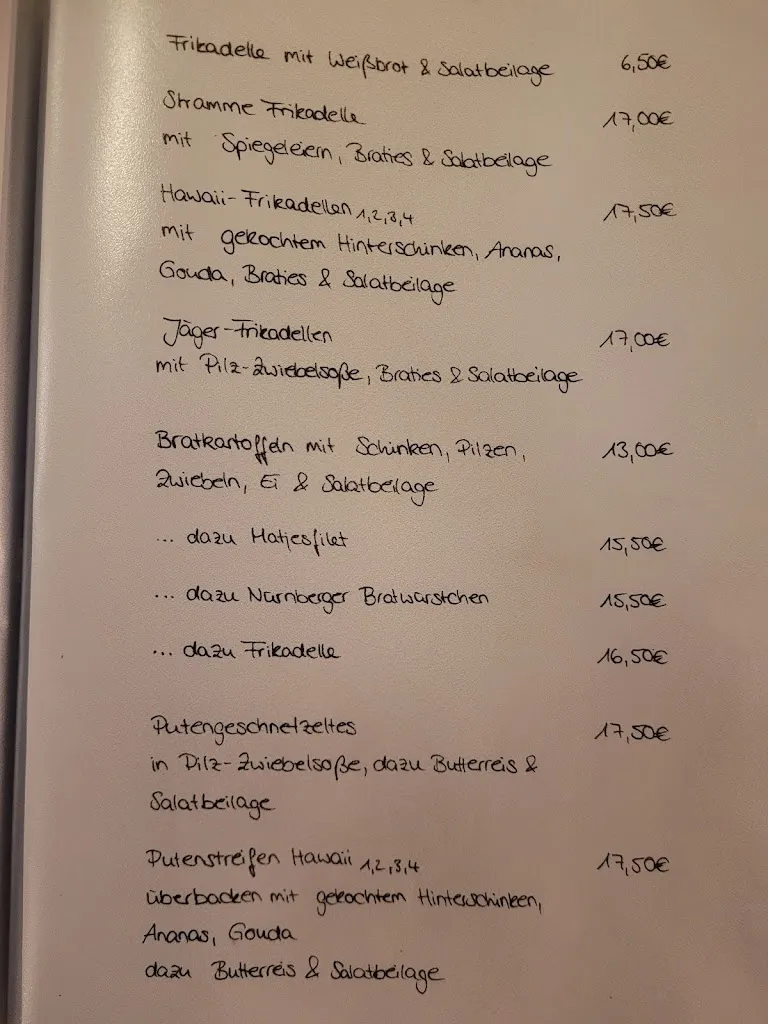 Frikadelle mit Weißbrot & Salatbeilage 6,50€
Stramme Frikadelle 17,00€
mit Spiegeleiern, Braties & Salatbeilage
Hawaii-Frikadellen 1,2,3,4 17,50€
mit gekochtem Hinterschinken, Ananas,
Gouda, Braties & Salatbeilage
Jäger-Frikadellen 17,00€
mit Pilz-Zwiebelsoße, Braties & Salatbeilage
Bratkartoffeln mit Schinken, Pilzen, 13,00€
Zwiebeln, Ei & Salatbeilage
... dazu Matjesfilet 15,50€
... dazu Nürnberger Bratwürstchen 15,50€
... dazu Frikadelle 16,50€
Putengeschnetzeltes 17,50€
in Pilz-Zwiebelsoße, dazu Butterreis &
Salatbeilage
Putenstreifen Hawaii 1,2,3,4 17,50€
überbacken mit gekochtem Hinterschinken,
Ananas, Gouda
dazu Butterreis & Salatbeilage